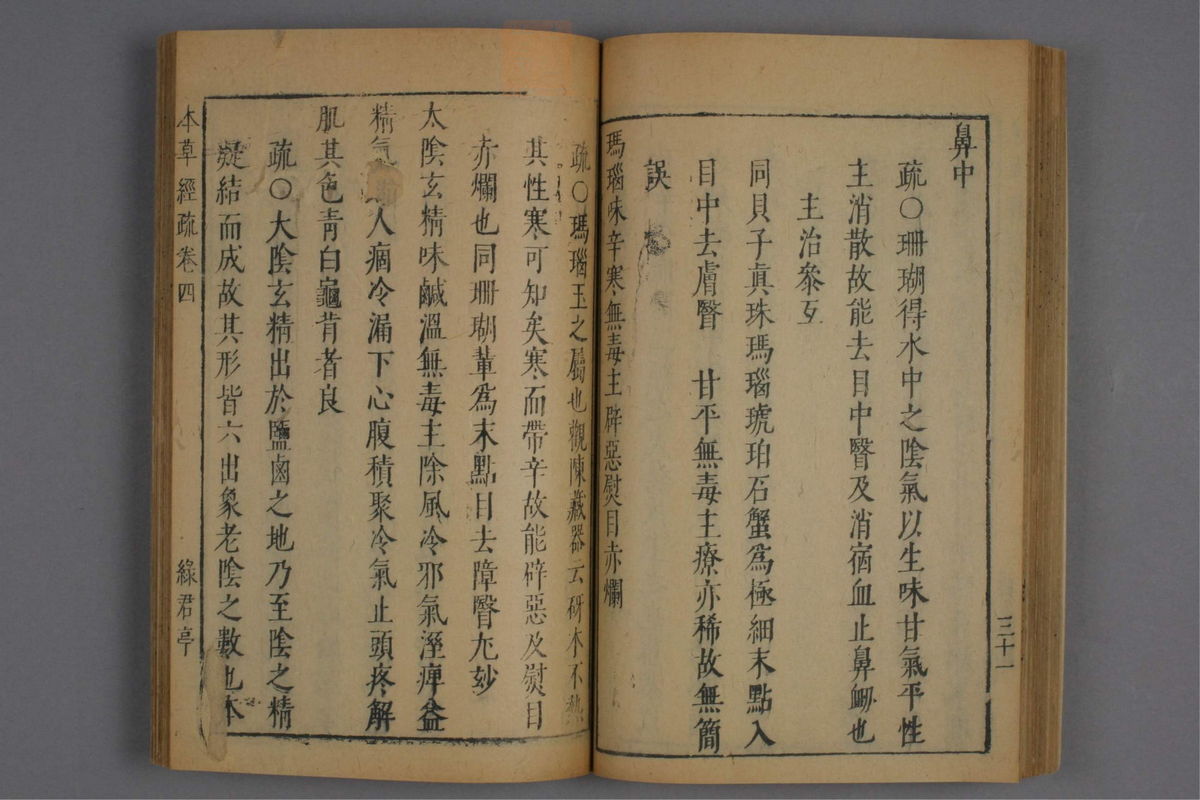 鼻中
疏○珊瑚得水中之陰氣以生味甘氣平性
主消散故能去目中瞖及消宿血止鼻衄也
主治參互
同貝子真珠瑪瑙琥珀石蟹為極細末點入
目中去膚瞖 甘平無毒主療亦稀故無簡
誤
瑪瑙味辛寒無毒主辟惡熨目赤爛
三十一
疏○瑪瑙玉之屬也觀陳藏器云砑木不熱
其性寒可知矣寒而帶辛故能辟惡及熨目
赤爛也同珊瑚輩為末點目去障瞖尤妙
太陰玄精味鹹溫無毒主除風冷邪氣溼痺益
精氣 人痼冷漏下心腹積聚冷氣止頭疼解
肌其色青白龜背者良
疏○大陰玄精出於鹽鹵之地乃至陰之精
凝結而成故其形皆六出象老陰之數也本
本草經疏卷四 綠君亭